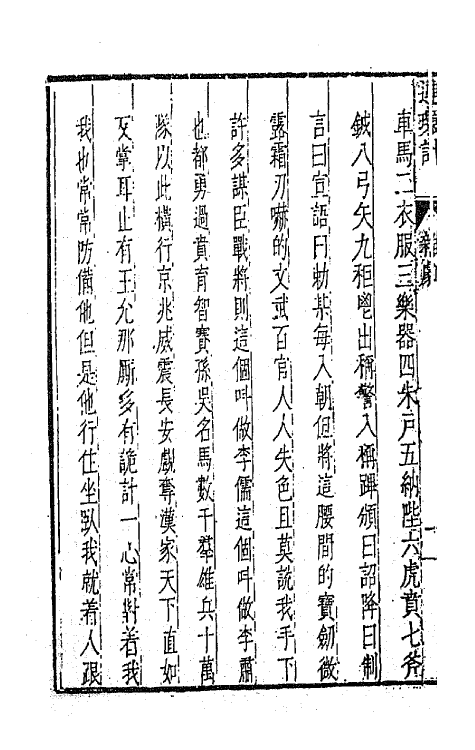 車馬二衣服三樂器四朱戶五納陛六虎賁七斧
鉞八弓矢九秬鬯出稱警入稱蹕頒曰詔降曰制
言曰宣語曰勑某每入朝但將這腰間的寶劍微
露霜刃嚇的文武百官人人失色且莫說我手下
許多謀臣戰將則這個呌做李儒這個呌做李肅
也都勇過賁育智賽孫吳名馬數千羣雄兵十萬
隊以此橫行京兆威震長安戲奪漢家天下直如
反掌耳止有王允那厮多有詭計一心常對着我
我也常常防備他但是他行住坐臥我就着人跟